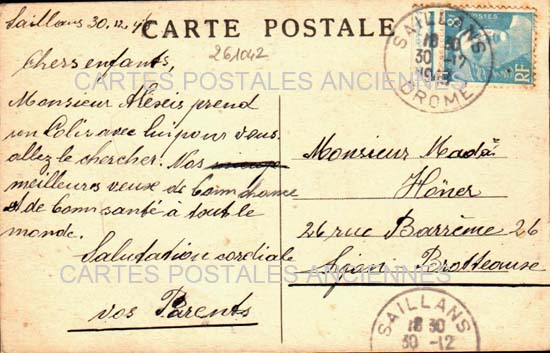 Saillans 30.12.47
CARTE POSTALE
261042
Chers enfants,
Monsieur Alexis prend
un Colis avec lui pour vous
allez le chercher. Nos
meilleurs veux de bonn chance
et de bonn santé à tout le
monde.
Salutation cordiale
vos Parents
Monsieur Mad
Höner
26 rue Barrème 26
Lyon - Brotteause
SAILLANS
18 30
30 -12
DROME
POSTES
RF
SAILLANS
18 30
30 -12
CARTES POSTALES ANCIENNES
CARTES POSTALES ANCIENNES